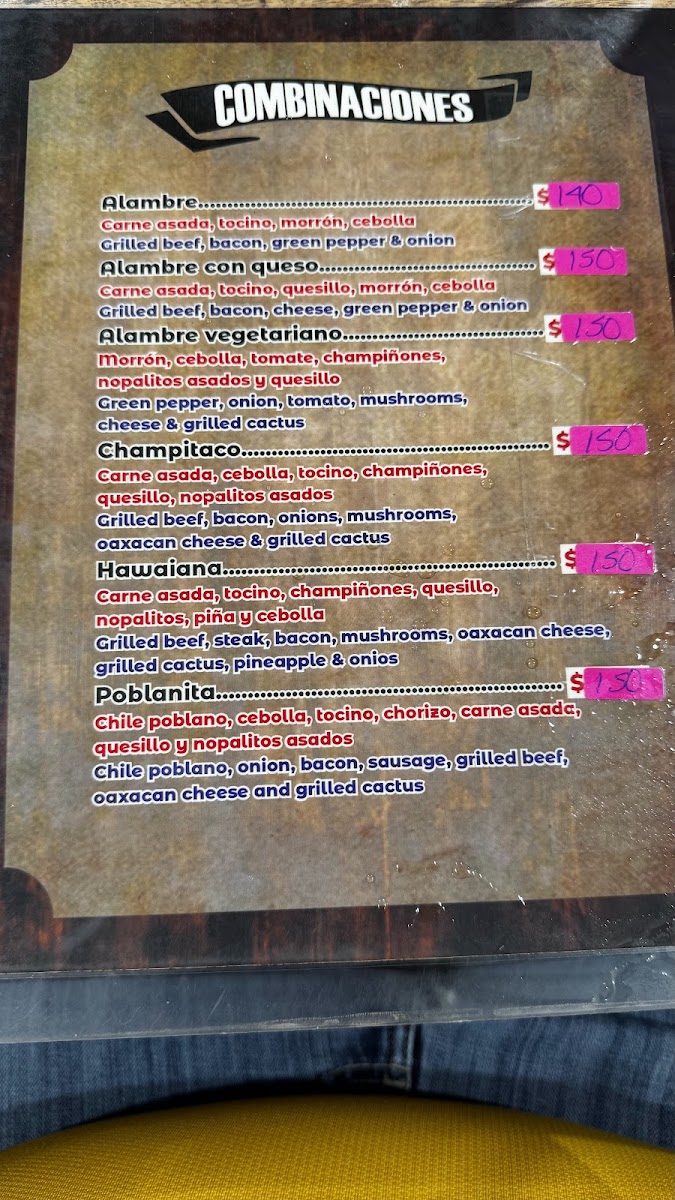 COMBINACIONES
Alambre.......... $140
Carne asada, tocino, morrón, cebolla
Grilled beef, bacon, green pepper & onion
Alambre con queso.......... $150
Carne asada, tocino, quesillo, morrón, cebolla
Grilled beef, bacon, cheese, green pepper & onion
Alambre vegetariano.......... $150
Morrón, cebolla, tomate, champiñones,
nopalitos asados y quesillo
Green pepper, onion, tomato, mushrooms,
cheese & grilled cactus
Champitaco.......... $150
Carne asada, cebolla, tocino, champiñones,
quesillo, nopalitos asados
Grilled beef, bacon, onions, mushrooms,
oaxacan cheese & grilled cactus
Hawaiana.......... $150
Carne asada, tocino, champiñones, quesillo,
nopalitos, piña y cebolla
Grilled beef, steak, bacon, mushrooms, oaxacan cheese,
grilled cactus, pineapple & onios
Poblanita.......... $150
Chile poblano, cebolla, tocino, chorizo, carne asada,
quesillo y nopalitos asados
Chile poblano, onion, bacon, sausage, grilled beef,
oaxacan cheese and grilled cactus